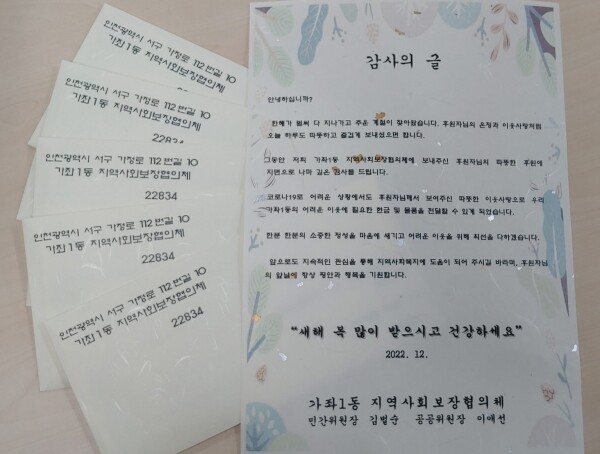 인천광역시 서구 가정로 112번길 10
가좌1동 지역사회보장협의체
인천광역시 서구 가정로 112번길 10
가좌1동 지역사회보장협의체
22834
인천광역시 서구 가정로 112번길 10
가좌1동 지역사회보장협의체
22834
인천광역시 서구 가정로 112번길 10
가좌1동 지역사회보장협의체
22834
인천광역시 서구 가정로 112번길 10
가좌1동 지역사회보장협의체
22834
감사의 글
안녕하십니까?
한해가 벌써 다 지나가고 추운 계절이 찾아왔습니다. 후원자님의 온정과 이웃사랑처럼
오늘 하루도 따뜻하고 즐겁게 보내셨으면 합니다.
그동안 저희 가좌1동 지역사회보장협의체에 보내주신 후원자님의 따뜻한 후원에
지면으로 나마 깊은 감사를 드립니다.
코로나19로 어려운 상황에서도 후원자님께서 보여주신 따뜻한 이웃사랑으로 우리
가좌1동의 어려운 이웃에 필요한 현금 및 물품을 전달할 수 있게 되었습니다.
한분 한분의 소중한 정성을 마음에 새기고 어려운 이웃을 위해 최선을 다하겠습니다.
앞으로도 지속적인 관심을 통해 지역사회복지에 도움이 되어 주시길 바라며, 후원자님
의 앞날에 항상 평안과 행복을 기원합니다.
“새해 복 많이 받으시고 건강하세요”
2022. 12.
가좌1동 지역사회보장협의체
민간위원장 김벌순 공공위원장 이애선